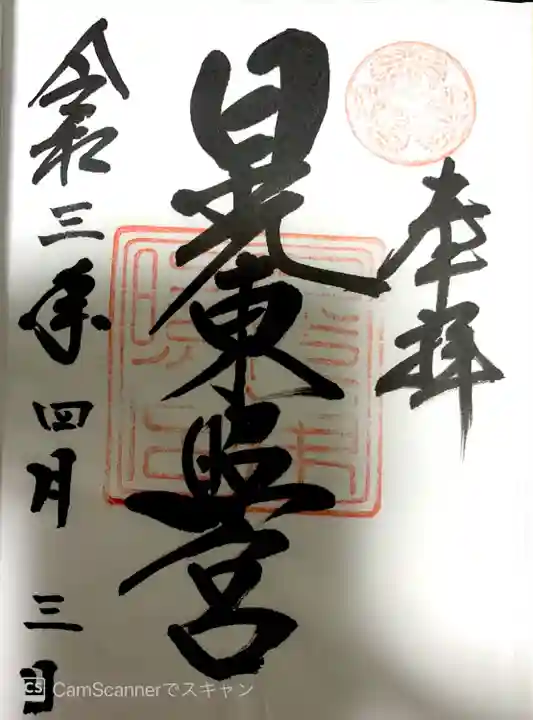 奉拝
日光東照宮
令和三年四月三日
CS CamScannerでスキャン